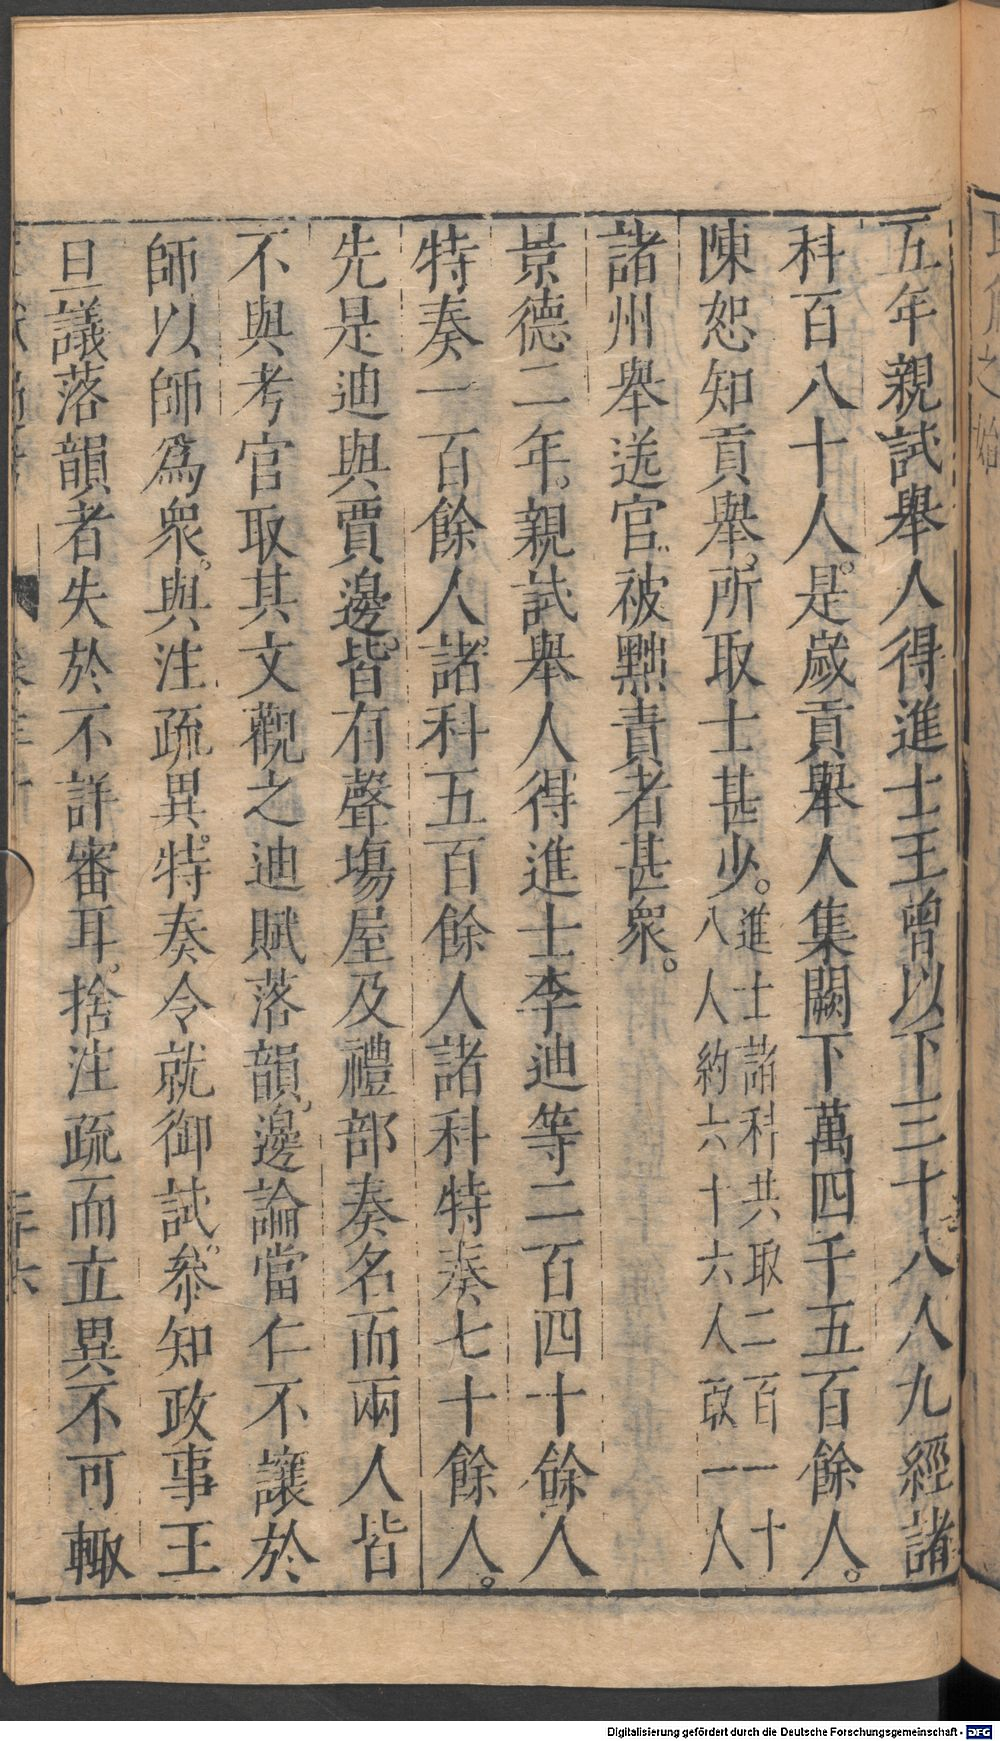 五年親試舉人得進士王曾以下三十八人九經諸
科百八十人。是歲貢舉人集闕下萬四千五百餘人。
陳恕知貢舉。所取士甚少。進士諸科共取二百一十
八人約六十六人取一人
諸州舉送官被黜責者甚衆。
景德二年。親試舉人得進士李迪等二百四十餘人
特奏一百餘人。諸科五百餘人諸科特奏七十餘人。
先是迪與賈邊。皆有聲塲屋及禮部奏名而兩人皆
不與考官取其文觀之迪賦落韻。邊論當仁不讓於
師以師爲衆。與注疏異。特奏令就御試。叅知政事王
旦議落韻者失於不詳審耳。捨注疏而立異不可輙
Digitalisierung gefördert durch die Deutsche Forschungsgemeinschaft - DFG